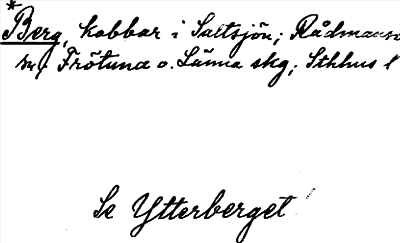 *Berg, kobbar i Saltsjön; Rådmansö
sn, Frötuna o. Länna skg; Sthlms l
Se Ytterberget